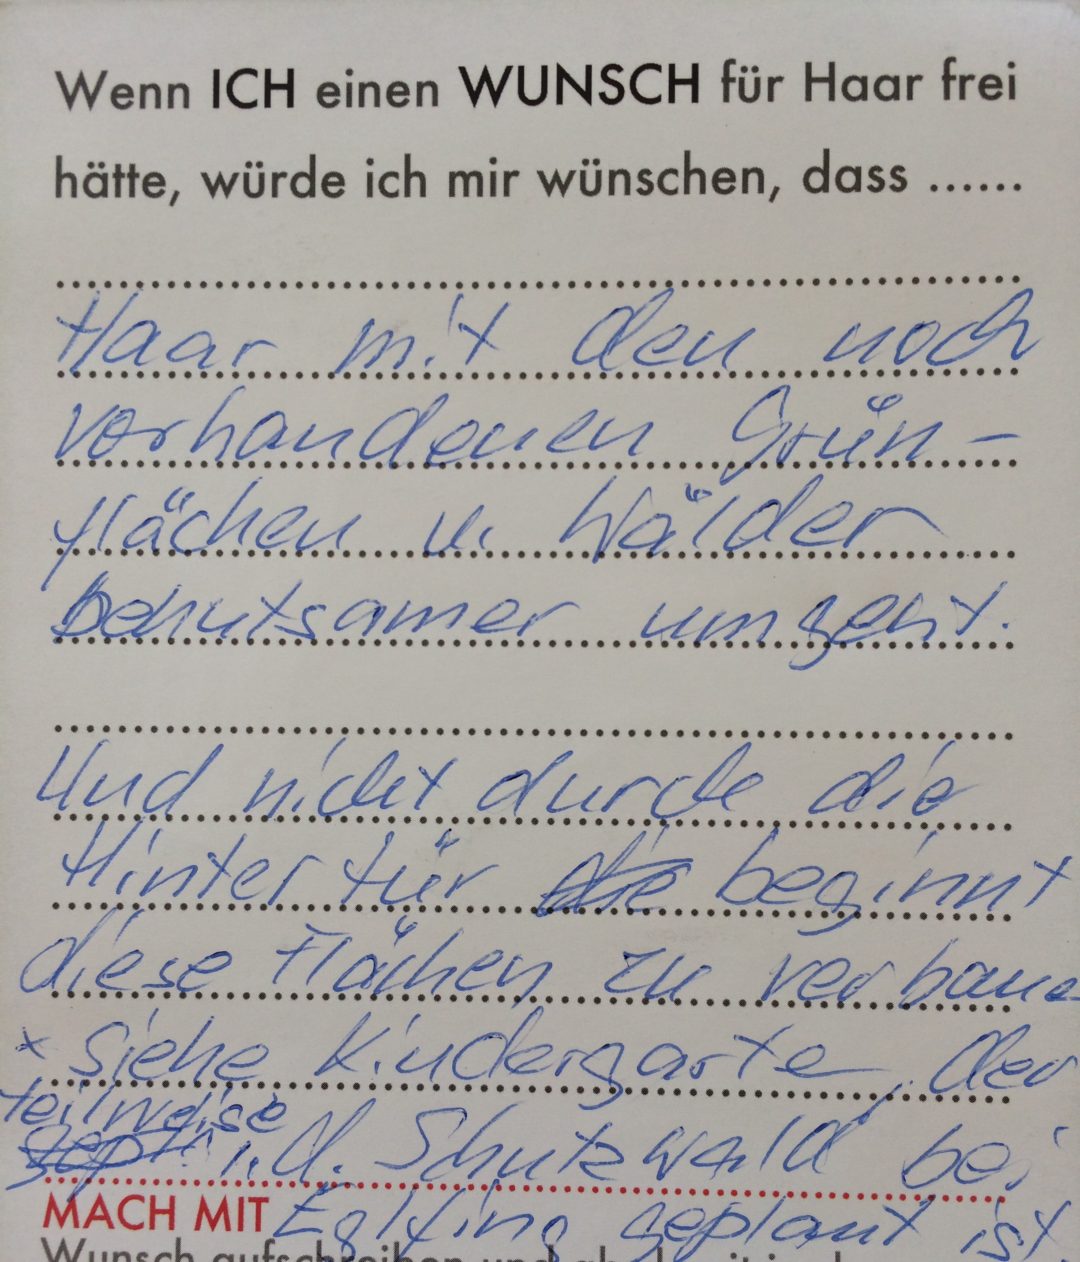 Wenn ICH einen WUNSCH für Haar frei
hätte, würde ich mir wünschen, dass ......
Haar mit den noch
vorhandenen Grün-
flächen u. Wälder
behutsamer umgeht.
Und nicht durch die
Hintertür die beginnt
diese Flächen zu verbauen
* Siehe Kindergarten, der
teilweise
gepl. i.d. Schutzwald bei
MACH MIT Eglfing geplant ist
Wunsch aufschreiben und